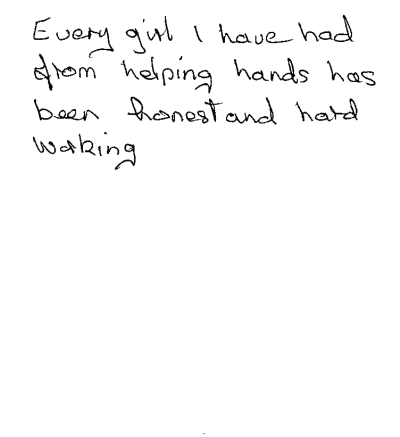 Every girl I have had
from helping hands has
been honest and hard
working